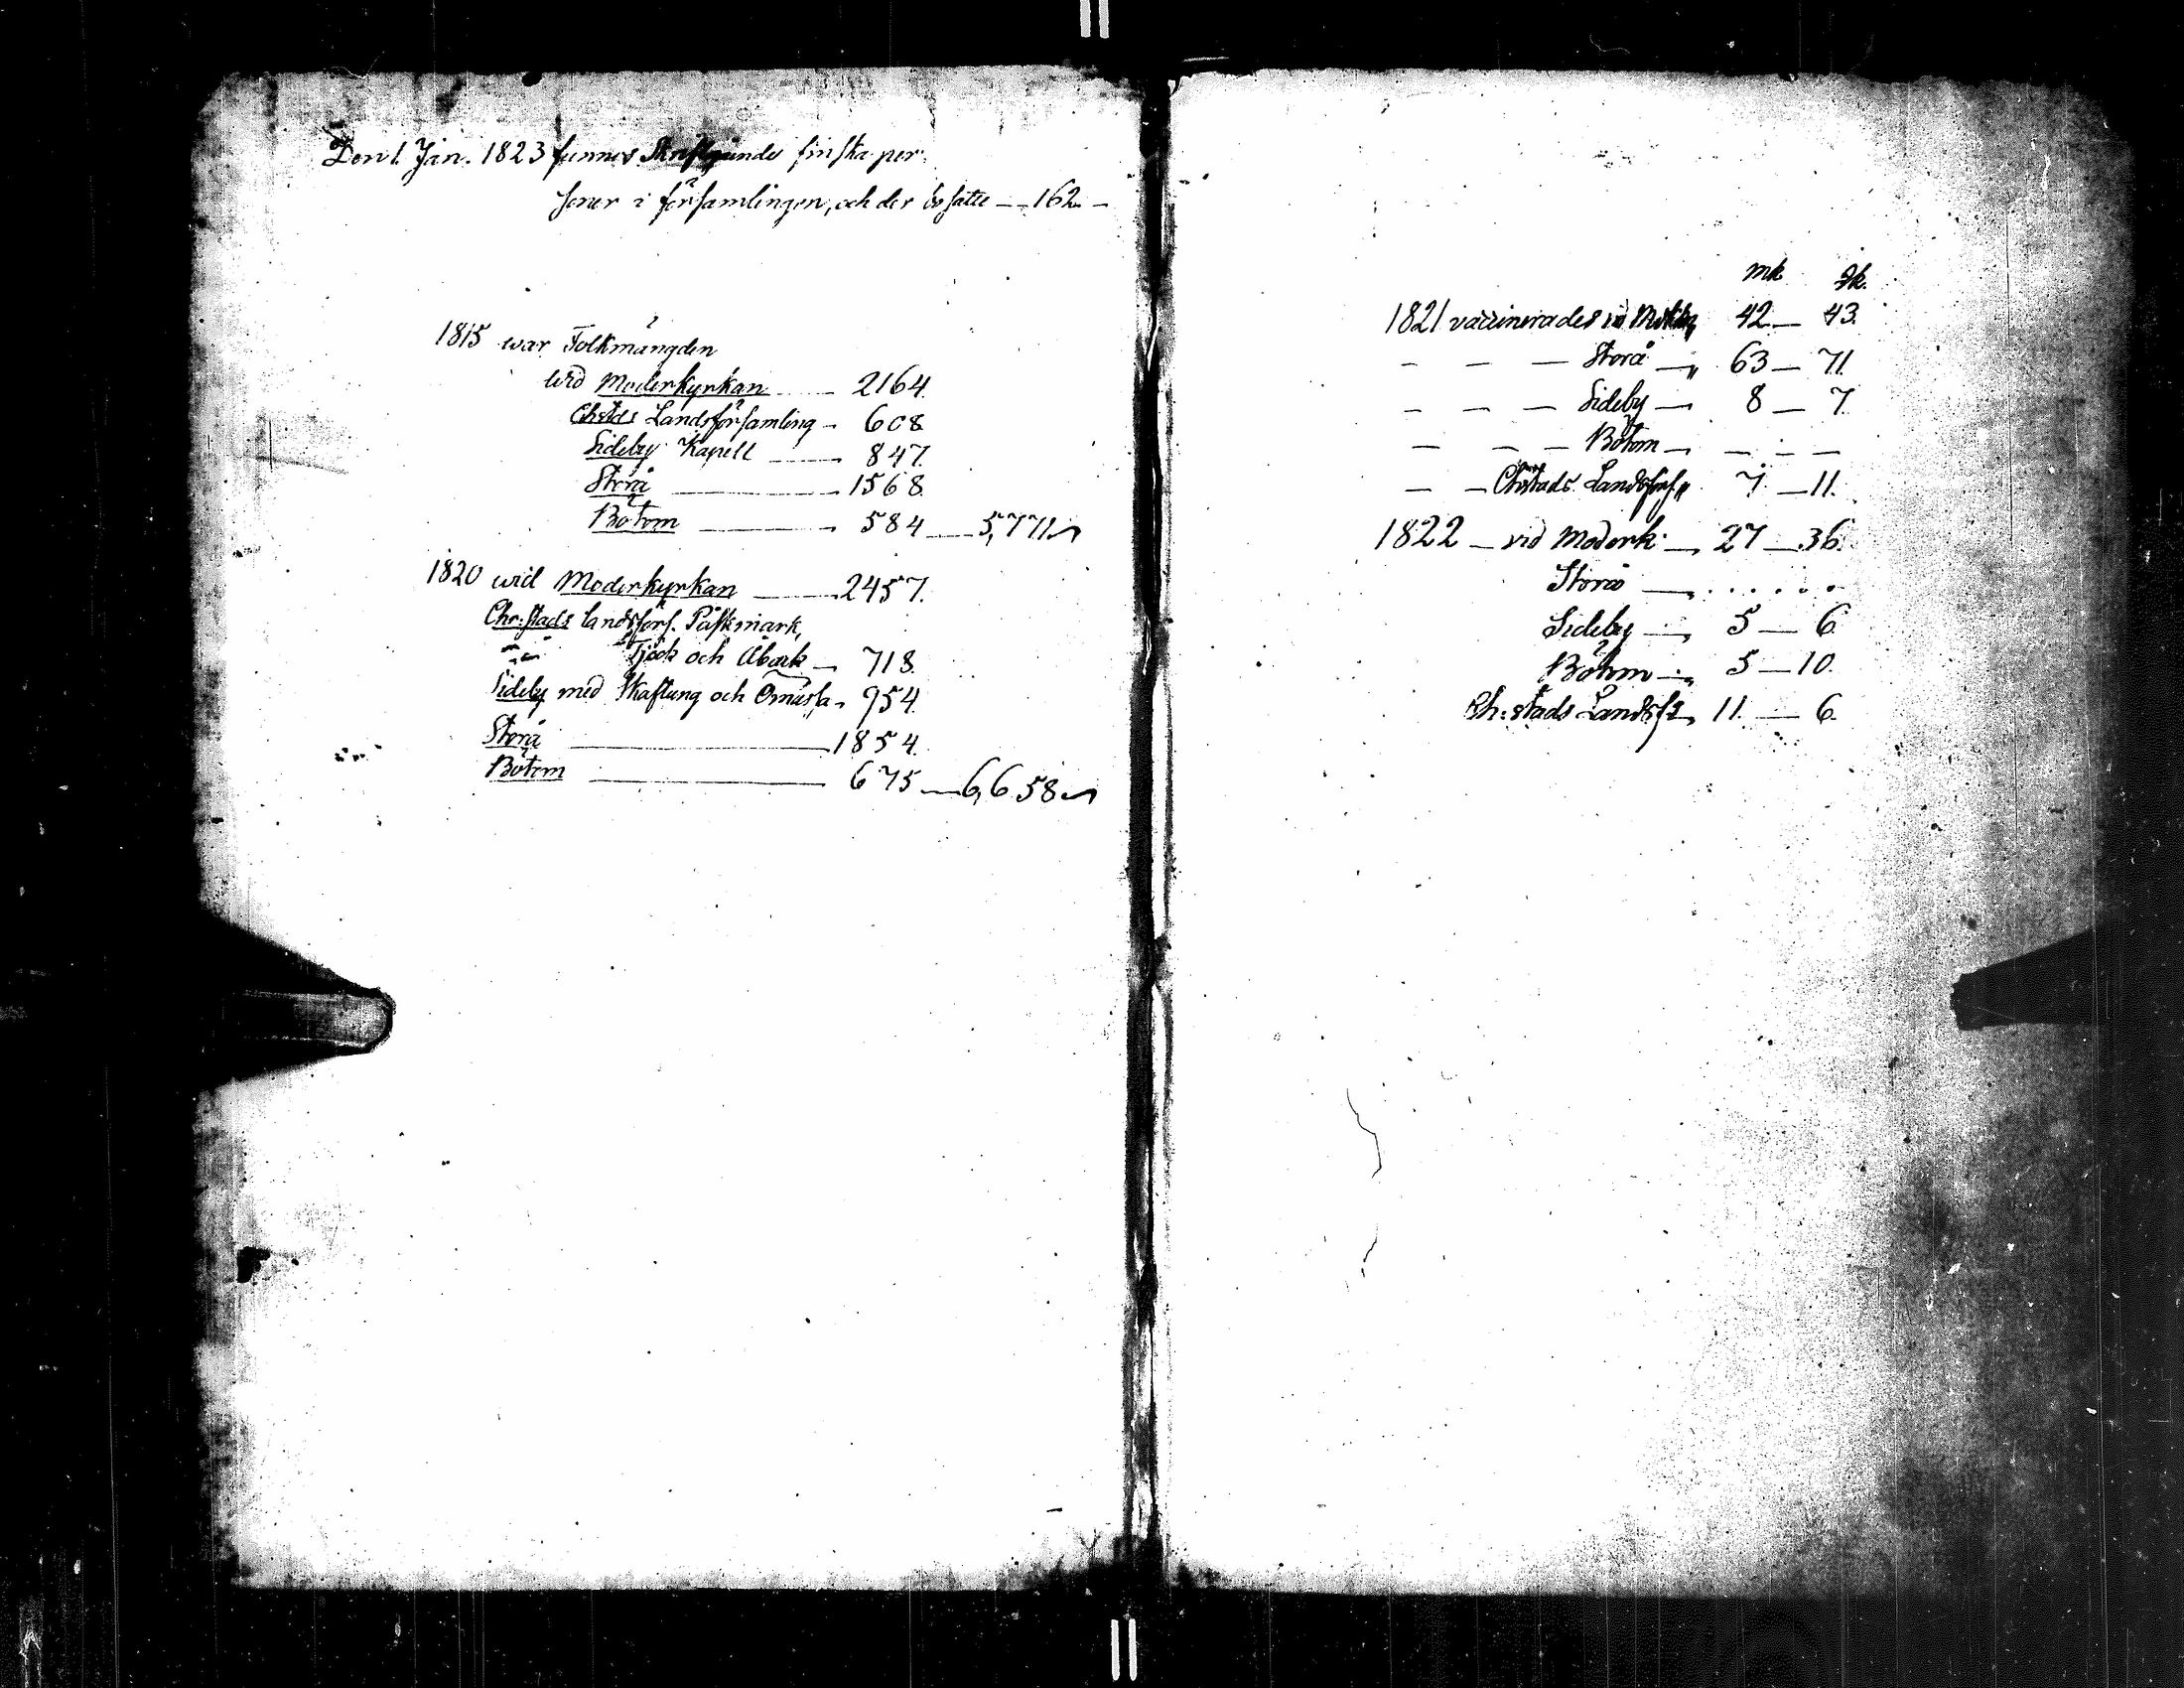 Den 1. Jan. 1823 funnos Skriftgående finska per
soner i församlingen, och der bosatte — 162 —
1815 war Folkmängden
wid Moderkyrkan — 2164.
Chrstds Landsförsamling — 608
Sideby Kapell — 847.
Storå — 1568.
Bötom — 584 — 5,771
1820 wid Moderkyrkan — 2457.
Chr:stads landsförs. Påskmark,
Tjöck och Åback — 718.
Sideby med Skaftung och Ömossa — 954.
Storå — 1854.
Bötom — 675 — 6,658
mk qk.
1821 vaccinerades vid Modk 42 — 43.
— — — Storå — 63 — 71.
— — — Sideby — 8 — 7.
— — — Bötom — — — —
— — Chrstads Landsförs. 7. — 11.
1822 — vid Moderk. — 27 — 36.
Storå — . . . . . .
Sideby — 5 — 6.
Bötom — 5 — 10.
Ch:stads Landsfs — 11. — 6.